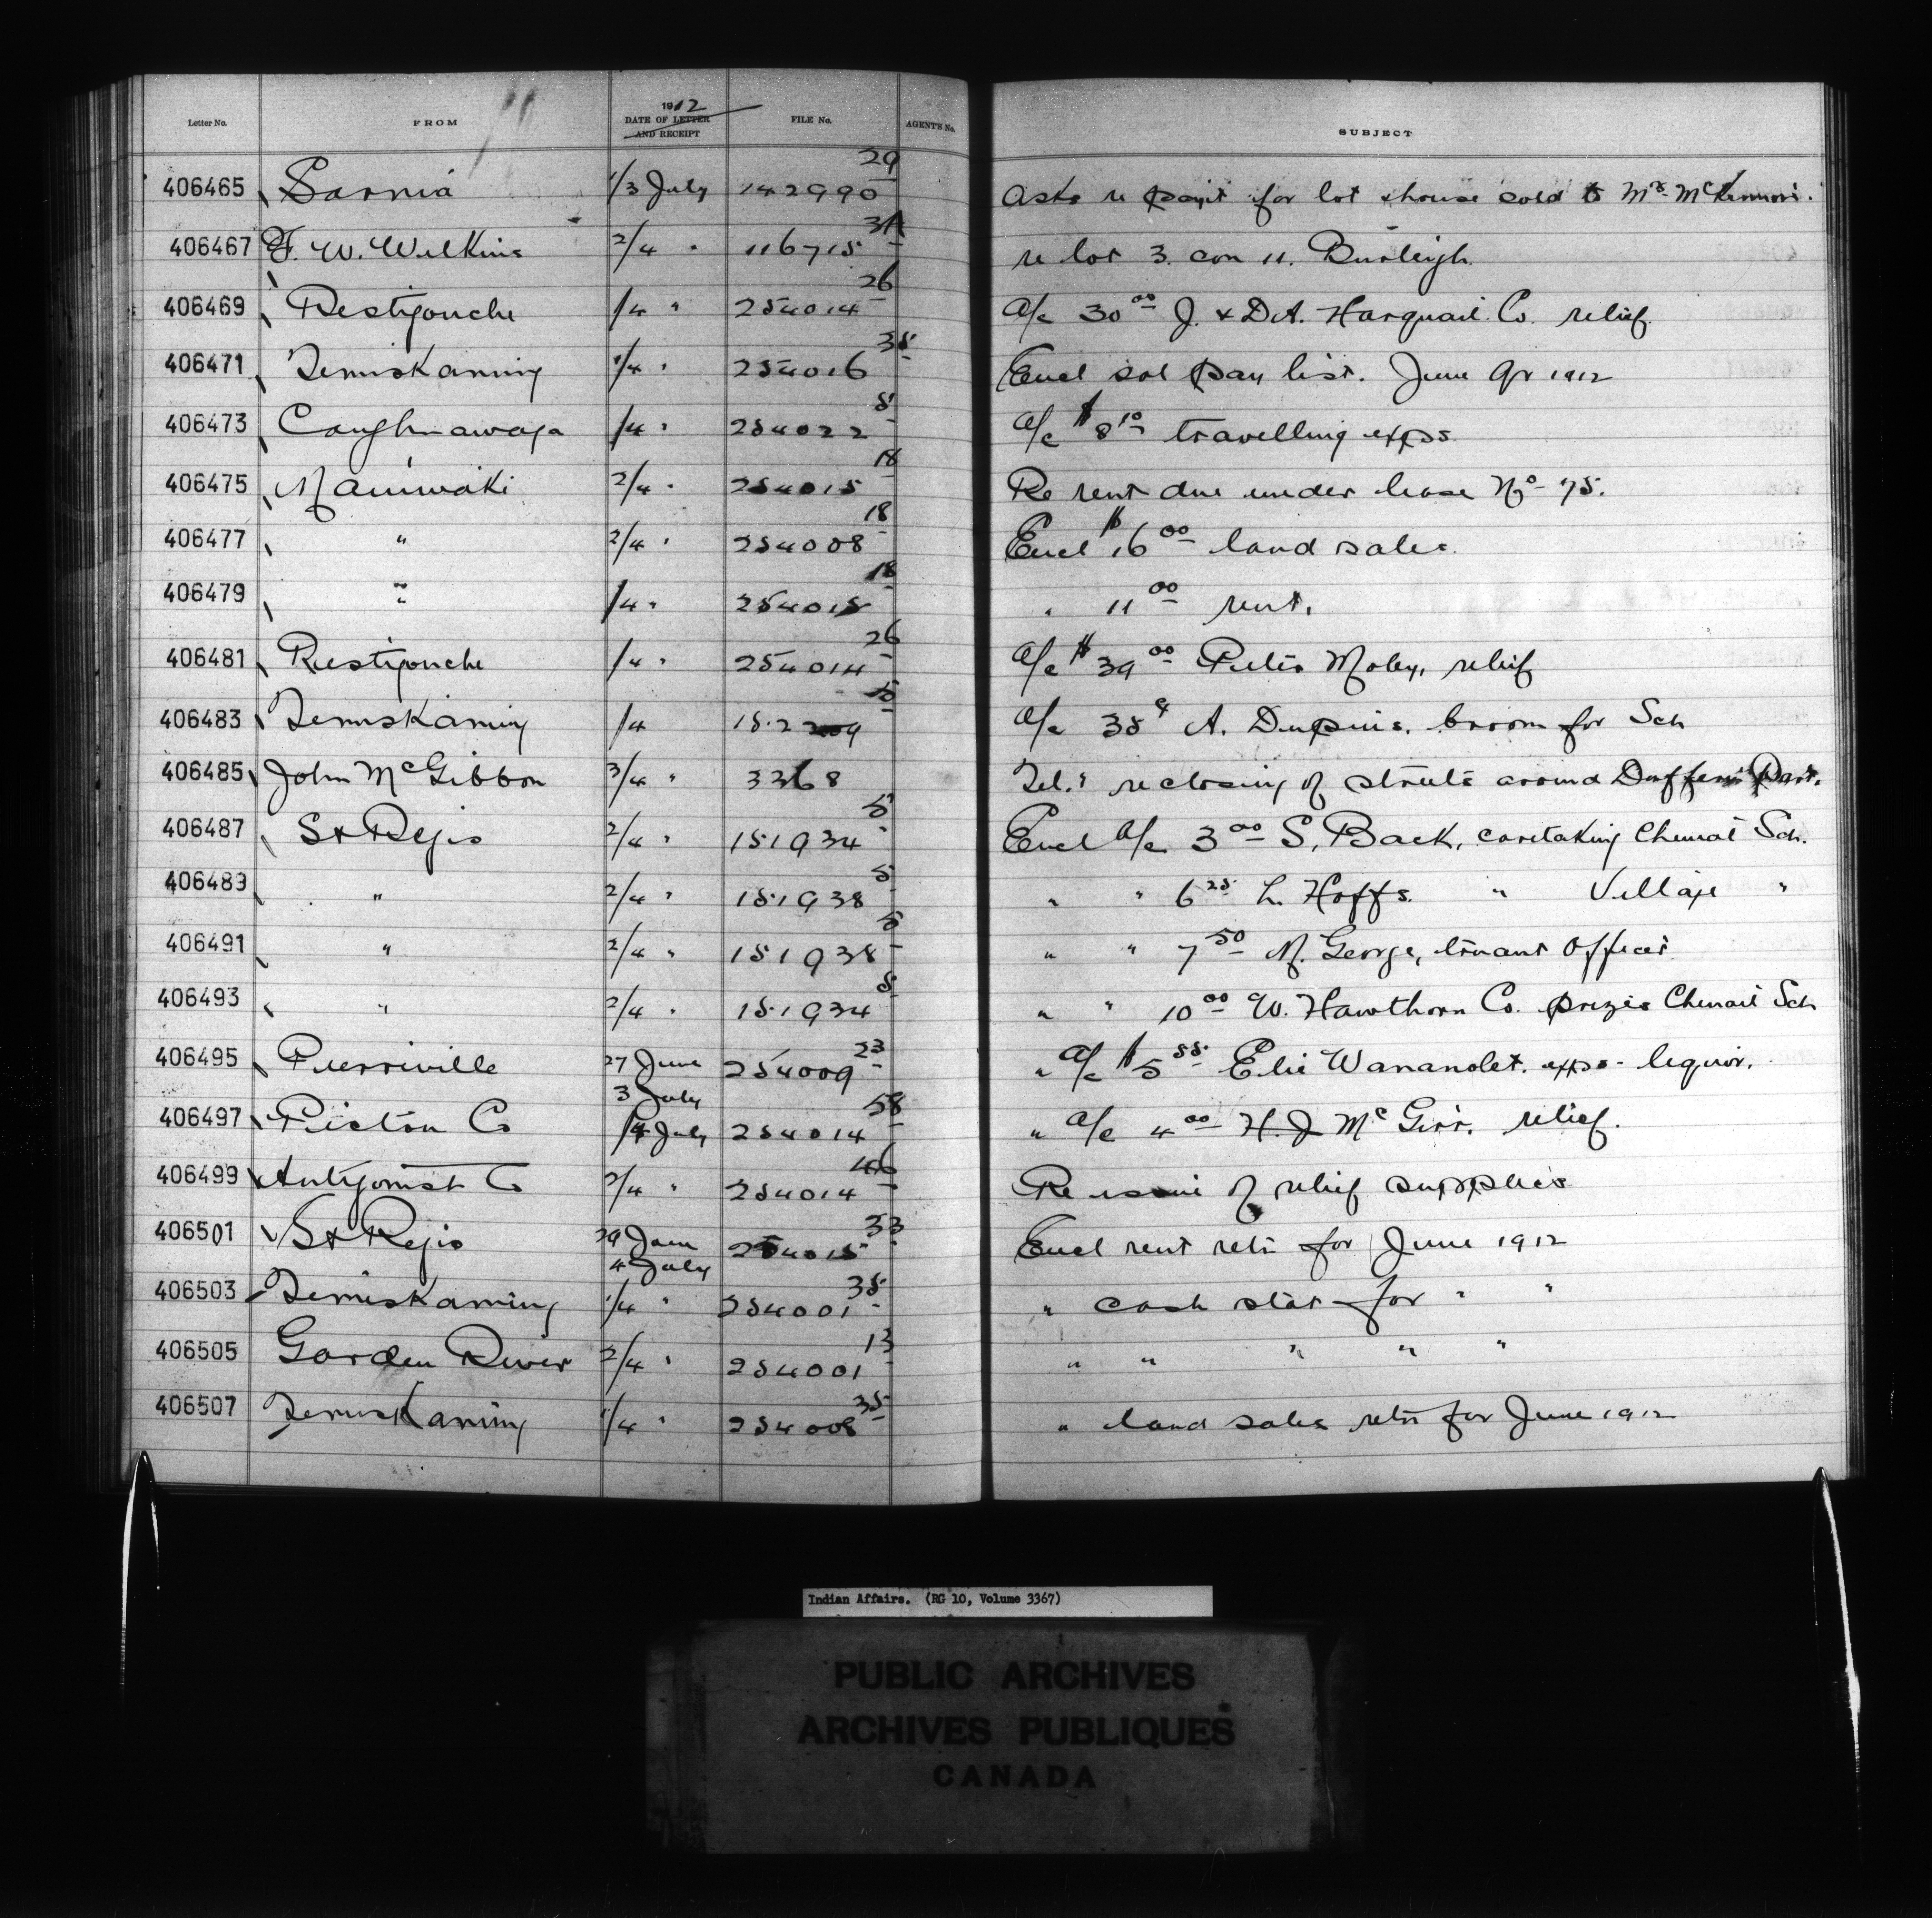 Letter No. FROM 1912 DATE OF LETTER AND RECEIPT FILE No. AGENT'S No. SUBJECT
406465 Sarnia 1/3 July 142990 29 Asks re payt for lot & house sold to Mrs
406467 F. W. Wilkins 2/4 " 116715 3A re lot 3. con 11. Burleigh.
406469 Restigouche 1/4 " 254014 26 a/c 30 00 J. & D.A. Harquail Co. relief.
406471 Temiskaming 1/4 " 254016 35 Encl sal pay list. June Qr 1912
406473 Caughnawaga 1/4 " 254022 5 a/c $8 10 travelling exps.
406475 Maniwaki 2/4 " 254015 18 Re rent due under lease No 75.
406477 " 2/4 " 254008 18 Encl $16 00 land sales.
406479 " 1/4 " 254015 18 " 11 00 rent.
406481 Restigouche 1/4 " 254014 26 a/c $39 00 Peter Moley, relief
406483 Temiskaming 1/4 152209 5 a/c 35 ¢ A. Dupuis. broom for Sch
406485 John McGibbon 3/4 " 3368 Tel. re closing of streets around Dufferin Park.
406487 St Regis 2/4 " 151934 5 Encl a/c 3 00 S. Back, caretaking Chenail Sch.
406489 " 2/4 " 151938 5 " " 6 25 L. Hoffs. " Village "
406491 " 2/4 " 151938 5 " " 7 50 M. George, truant Officer
406493 " 2/4 " 151934 5 " " 10 00 W. Hawthorn Co. prizes Chenail Sch
406495 Pierreville 27 June 3 July 254009 23 " a/c $5 55 Elie Wananolet. exps- liquor.
406497 Pictou Co 1/4 July 254014 58 " a/c 4 00 H. J. McGirr. relief.
406499 Antigonish Co 2/4 " 254014 46 Re issue of relief supplies
406501 St Regis 29 June 4 July 254015 33 Encl rent retn for June 1912
406503 Temiskaming 1/4 " 254001 35 " cash stat for " "
406505 Garden River 2/4 " 254001 13 " " " " "
406507 Temiskaming 1/4 " 254008 35 " land sales retn for June 1912
Indian Affairs. (RG 10, Volume 3367)
PUBLIC ARCHIVES
ARCHIVES PUBLIQUES
CANADA